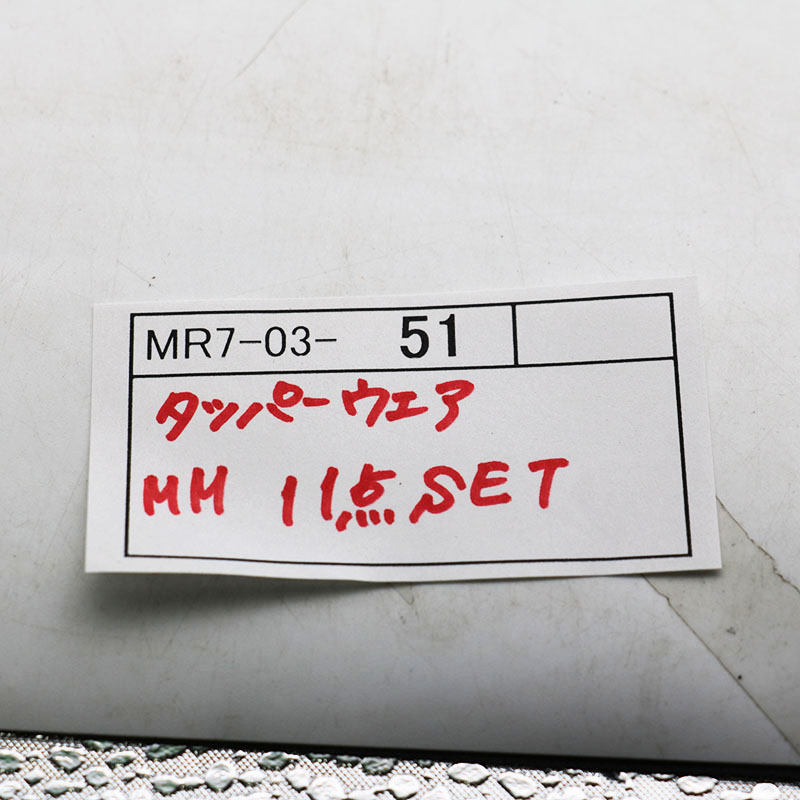 MR7-03- 51
タッパーウェア
MM 11点SET